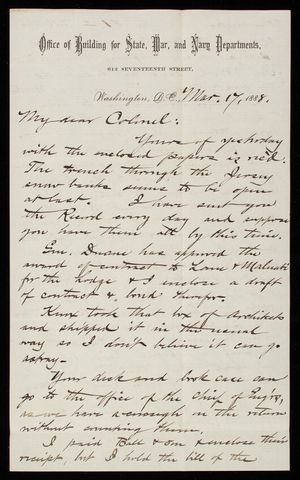 Office of Building for State, War, and Navy Departments,
613 SEVENTEENTH STREET,
Washington, D.C., Mar. 17, 1888.
My dear Colonel:
Yours of yesterday
with the enclosed papers is rec'd.
The trench through the Jersey
snow banks seems to be open
at last. I have sent you
the Record every day and suppose
you have them all by this time.
Gen. Duane has approved the
award of contract to Lane &
for the Lodge & I enclose a draft
of contract & bond therefor.
Knox took that box of Architects
and shipped it in the usual
way so I don't believe it can go
astray—
Your desk and book case can
go to the office of the Chief of Eng'rs,
as we have enough on the return
without counting them.
I paid Ball & on & enclose their
receipt, but I hold the bill of the